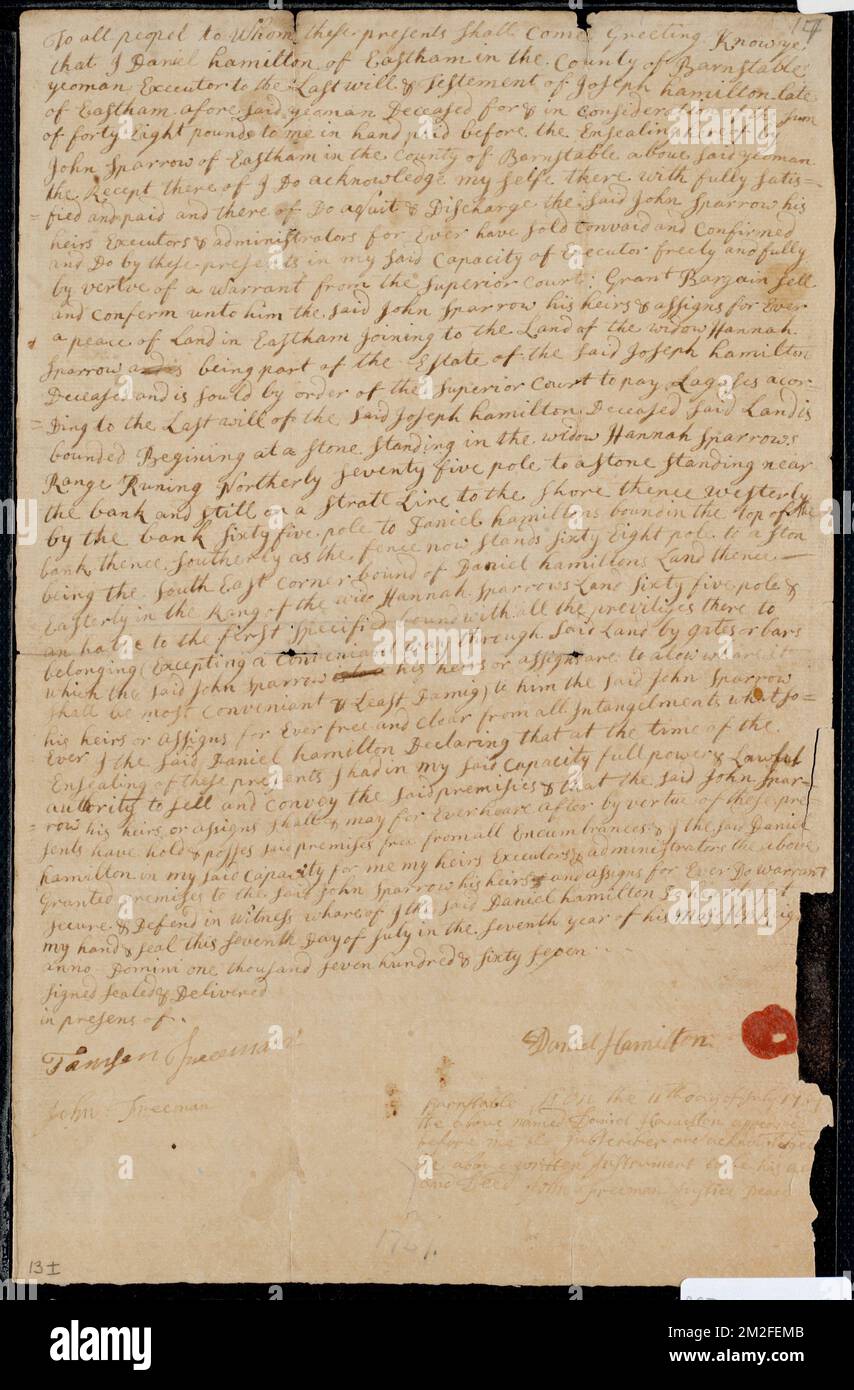 17
To all peopel to Whom these presents shall Come Greeting Know ye
that I Daniel hamilton of Eastham in the County of Barnstable
yeoman Executor to the Last will & Testement of Joseph hamilton late
of Eastham afore said yeoman Deceased for & in Consideration of the sum
of forty Eight pounds to me in hand paid before the Ensealing hereof by
John Sparrow of Eastham in the County of Barnstable above said yeoman
the Recept there of I Do acknowledge my selfe there with fully satis=
=fied and paid and there of Do aquit & Discharge the said John Sparrow his
heirs Executors & administrators for Ever have sold Convaid and Confirmed
and Do by these presents in my said Capacity of Executor freely and fully
by vertue of a warrant from the Superior Court: Grant Bargain sell
and Conferm unto him the said John Sparrow his heirs & assigns for Ever
a peace of Land in Eastham Joining to the Land of the widow Hannah
Sparrow being part of the Estate of the said Joseph hamilton
Deceased and is sould by order of the Superior Court to pay Lagases acor=
=Ding to the Last will of the said Joseph hamilton Deceased said Land is
bounded Begining at a stone standing in the widow Hannah Sparrows
Range Runing Northerly seventy five pole to a stone standing near
the bank and still on a strait Line to the shore thence westerly
by the bank sixty five pole to Daniel hamiltons bound in the top of the
bank thence southerly as the fence now stands sixty Eight pole to a ston
being the South East Corner bound of Daniel hamiltons Land thence
Easterly in the Rang of the wido Hannah Sparrows Land sixty five pole &
an halfe to the first specified bound with all the previlises there to
belonging (Excepting a Conveniant way through said Land by gates or bars
which the said John Sparrow his heirs or assigns are to alow whare it
shall be most Conveniant & Least Damig) to him the said John Sparrow
his heirs or assigns for Ever free and Clear from all Intangelments what so=
Ever I the said Daniel hamilton Declaring that at the time of the
Ensealing of these presents I had in my said Capacity full power & Lawful
autority to sell and Convey the said premises & that the said John Spar=
=row his heirs or assigns shall & may for Ever heare after by vertue of these pre=
sents have hold & posses said premises free from all Encumbrances & I the said Daniel
hamilton in my said Capacity for me my heirs Executors & administrators the above
Granted premises to the said John Sparrow his heirs and assigns for Ever Do warrant
secure & Defend in witness whare of I the said Daniel hamilton set
my hand & seal this seventh Day of July in the seventh year of his majestys Reign
anno Domini one thousand seven hundred & sixty seven
signed sealed & Delivered
in presens of
Daniel Hamilton
Tamsen Freeman
John Freeman
Barnstable, ss On the 11th day of July 1767
the above named Daniel Hamilton appeared
before me the subscriber and acknowledged
the above written Instrument to be his act
and Deed John Freeman Justice Peace
1767.
13±
alamy
Image ID: 2M2FEMB
www.alamy.com